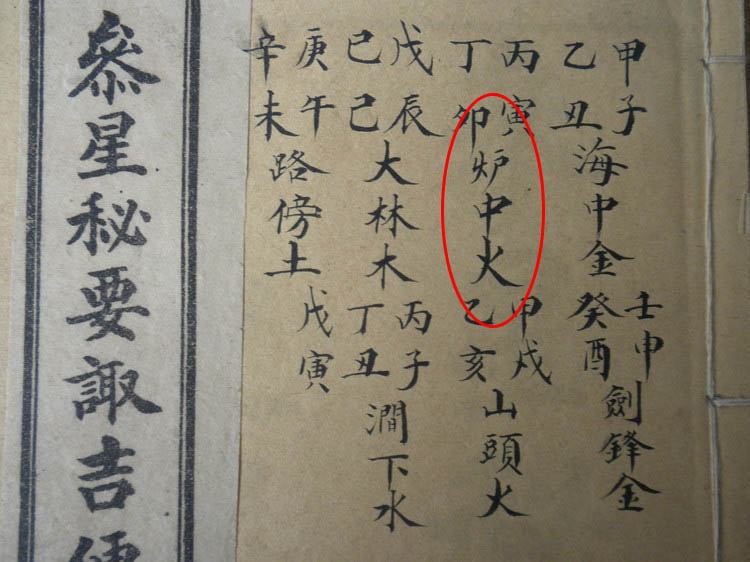 甲子
乙丑
海中金
壬申
癸酉
劍鋒金
丙寅
丁卯
炉中火
甲戌
乙亥
山頭火
戊辰
己巳
大林木
丙子
丁丑
澗下水
庚午
辛未
路傍土
戊寅
叅星秘要諏吉